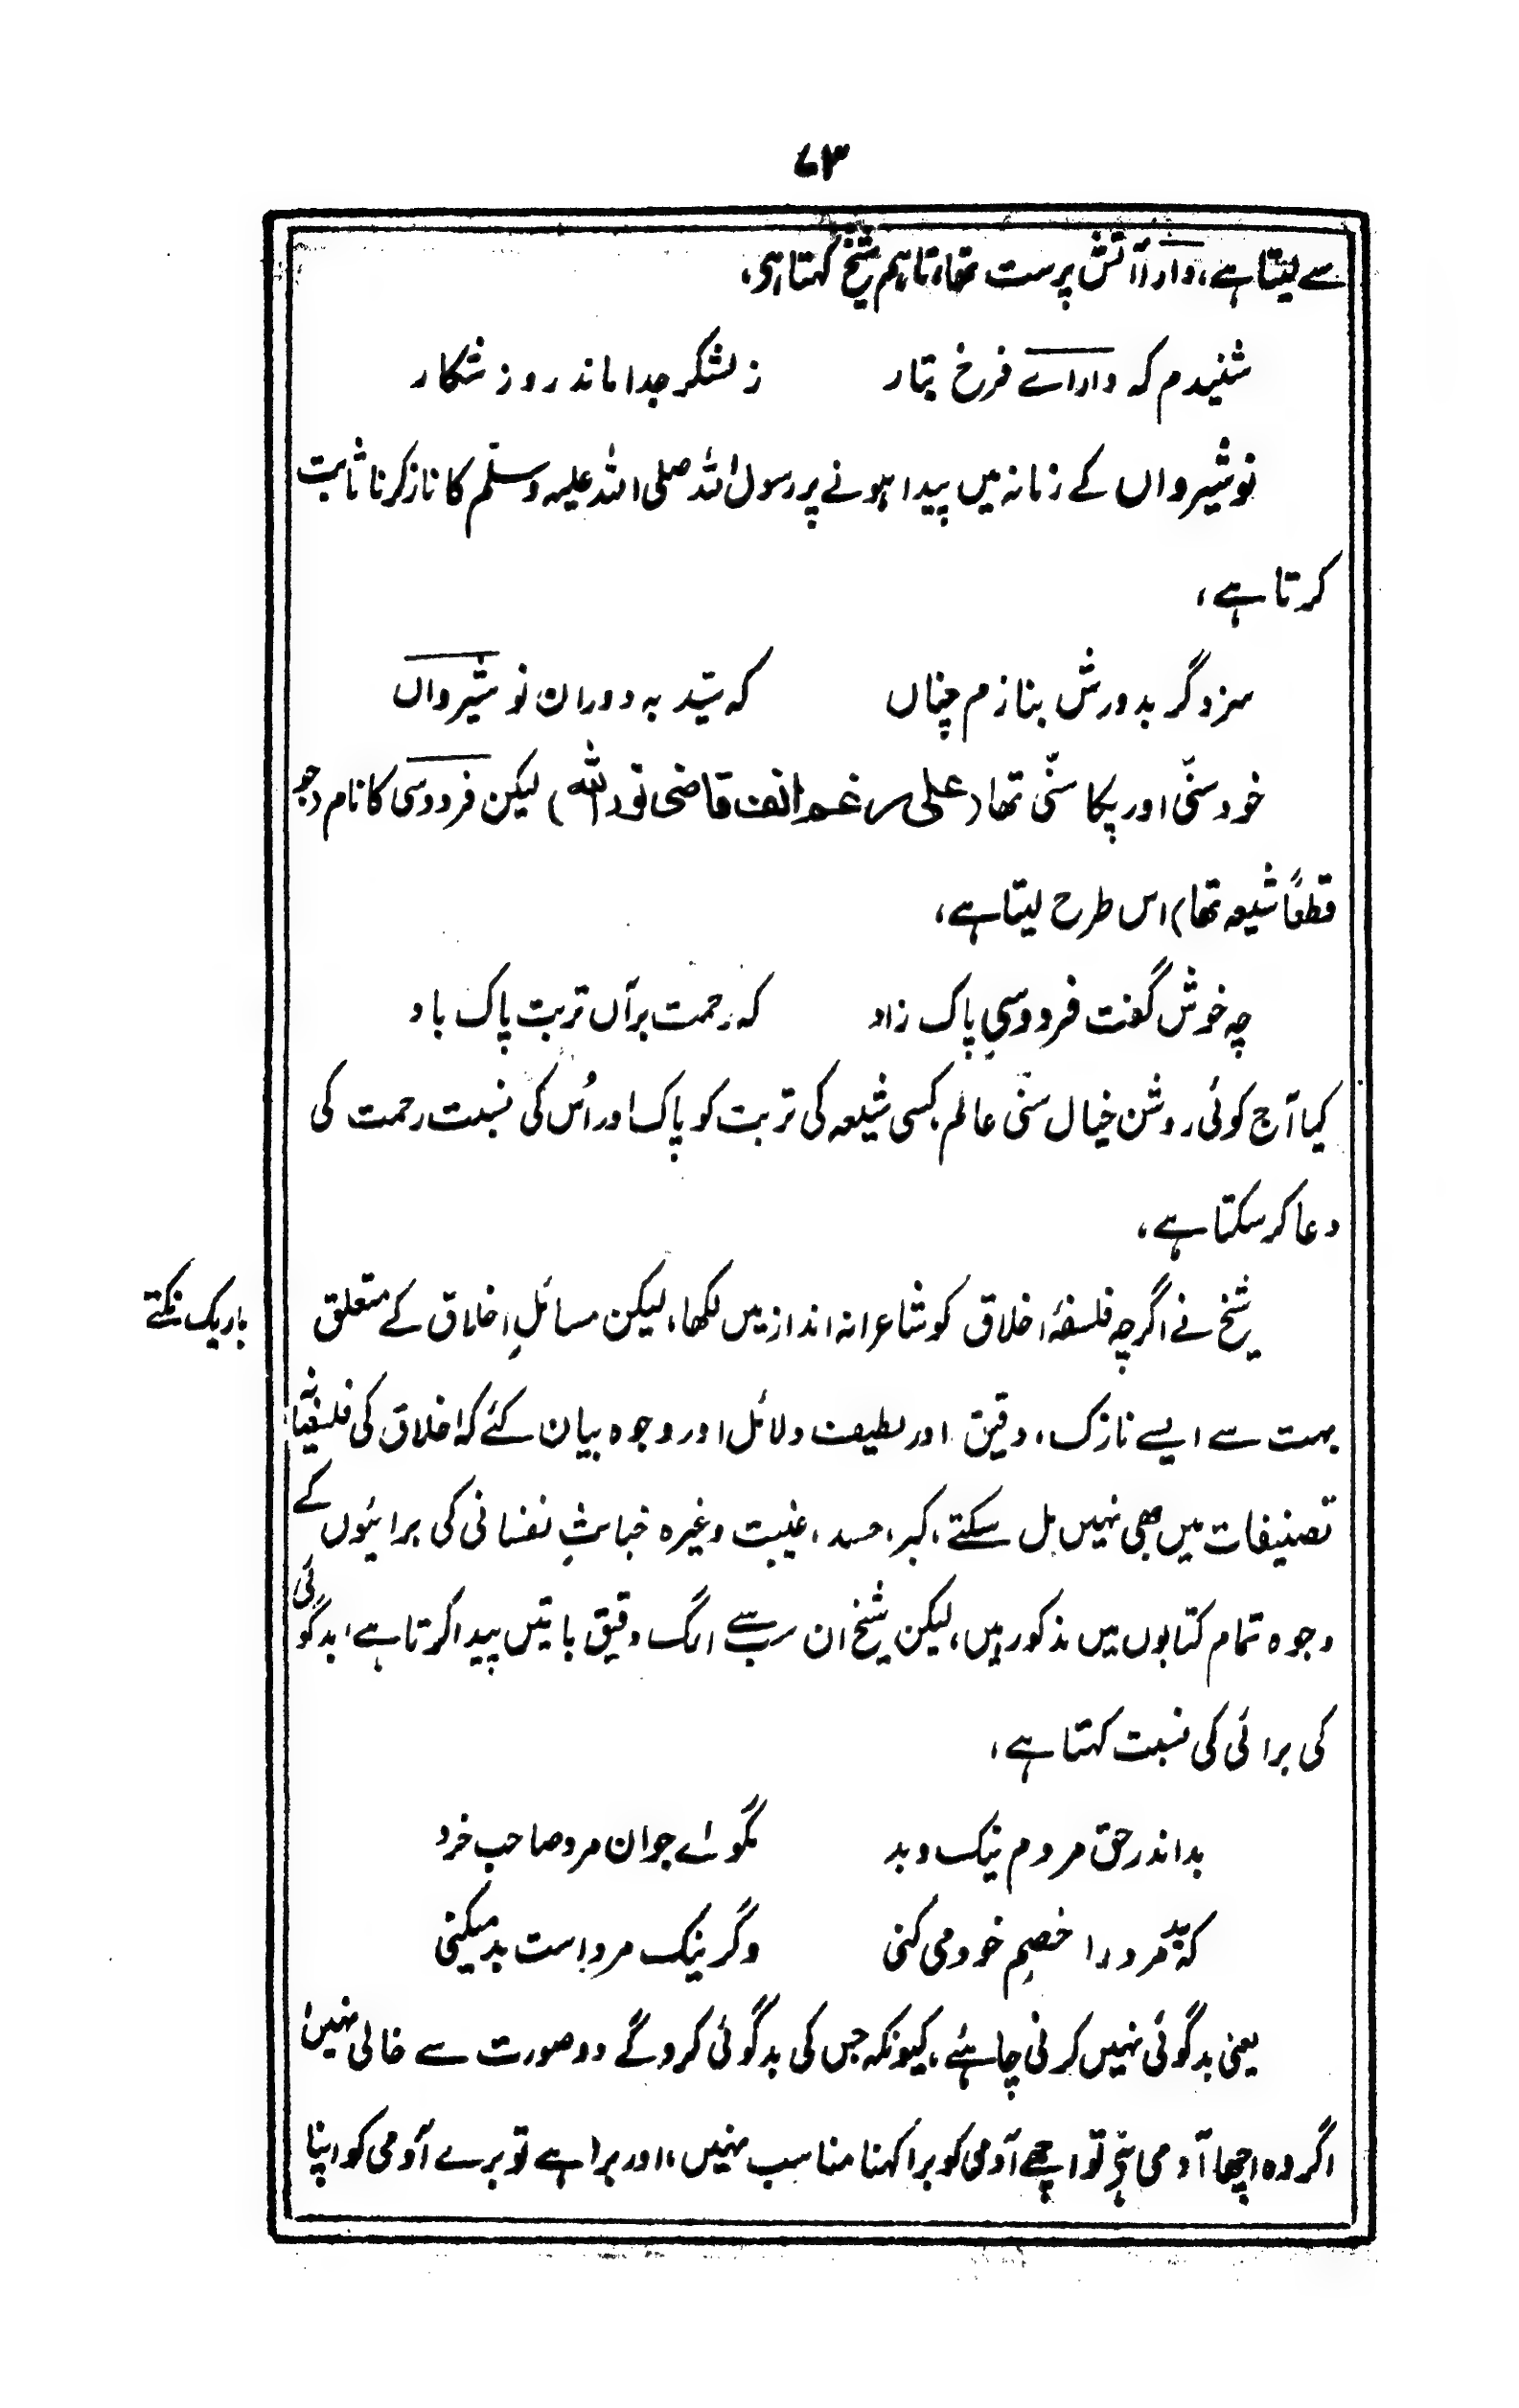 ۷۳
سے لیتا ہے، دارا آتش پرست تھا، تاہم شیخ کہتا ہی،
شنیدم کہ داراے فرخ تبار زلشکر جدا ماند روز شکار
نوشیرواں کے زمانہ میں پیدا ہونے پر رسول اللہ صلی اللہ علیہ وسلم کا ناز کرنا ثابت
کرتا ہے،
سزد گر بدورش بنازم چناں کہ سیّد بہ دوران نوشیرواں
خود سنّی اور پکا سنّی تھا (علی رغم انف قاضی نوراللہ) لیکن فردوسی کا نام (جو
قطعاً شیعہ تھا) اس طرح لیتا ہے،
چہ خوش گفت فردوسیِ پاک زاد کہ رحمت برآں تربت پاک باد
کیا آج کوئی روشن خیال سنّی عالم، کسی شیعہ کی تربت کو پاک اور اُس کی نسبت رحمت کی
دعا کر سکتا ہے،
باریک نکتے
شیخ نے اگرچہ فلسفۂ اخلاق کو شاعرانہ انداز میں لکھا، لیکن مسائلِ اخلاق کے متعلق
بہت سے ایسے نازک، دقیق اور لطیف دلائل اور وجوہ بیان کئے کہ اخلاق کی فلسفیانہ
تصنیفات میں بھی نہیں مل سکتے، کبر، حسد، غیبت وغیرہ خبائثِ نفسانی کی برائیوں کے
وجوہ تمام کتابوں میں مذکور ہیں، لیکن شیخ ان سب سے الگ دقیق باتیں پیدا کرتا ہے، بدگوئی
کی برائی کی نسبت کہتا ہے،
بد اندر حق مردم نیک و بد مگو اے جوان مرد صاحب خرد
کہ بد مرد را خصمِ خود می کنی وگر نیک مرد است بد میکنی
یعنی بدگوئی نہیں کرنی چاہئے، کیونکہ جس کی بدگوئی کروگے دو صورت سے خالی نہیں،
اگر وہ اچھا آدمی ہی تو اچھے آدمی کو برا کہنا مناسب نہیں، اور برا ہے تو برے آدمی کو اپنا